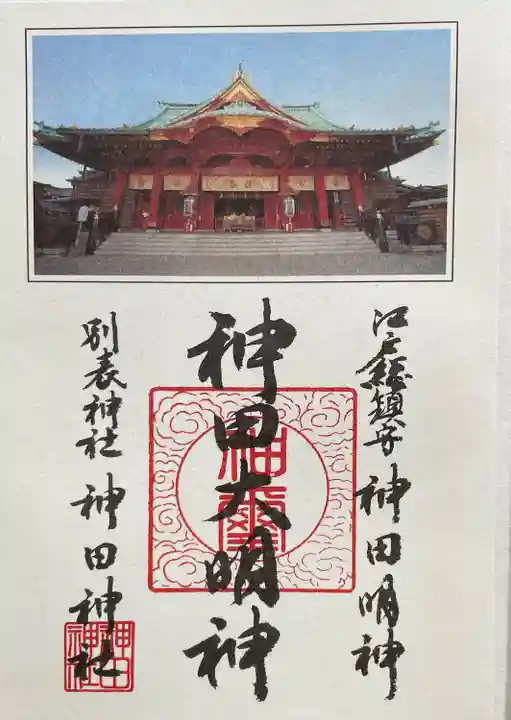 江戸総鎮守 神田明神
神田大明神
別表神社 神田神社
神田
神社